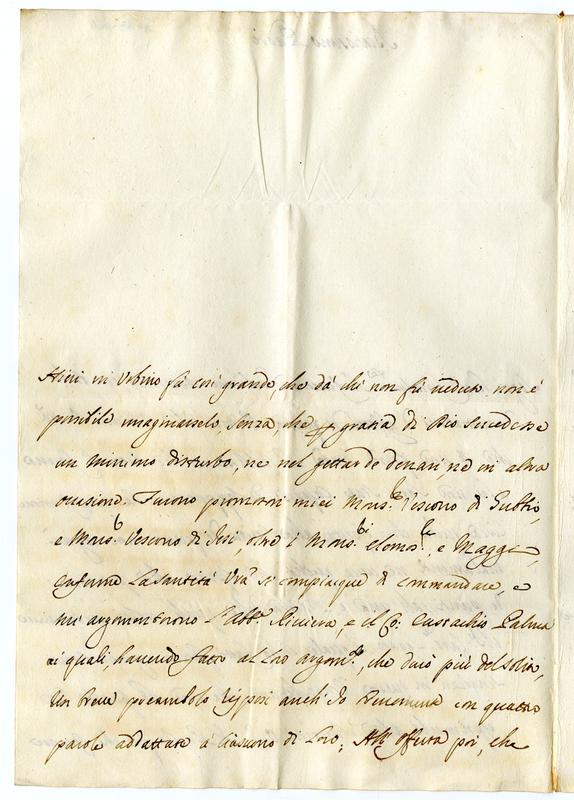 Hieri in Urbino fù così grande, che dà chi non fù veduto non è
possibile imaginarselo, senza, che per grazia di Dio succedesse
un minimo disturbo, ne nel gettar de denari, ne in altra
occasione. Furono promotori miei Mons.re Vescovo di Gubbio,
e Mons.r Vescovo di Jesi, oltre i Mons.ri Elemos.re, e Magg.
conforme La Santità V.ra si compiacque di commandare, e
mi argomentorono l'Abb.e Riviera, e il Co: Eustachio Palma
ai quali, havendo fatto al Loro argom.to, che durò più del solito,
un breve preambolo risposi anch'Io brevemente con quattro
parole addattate à ciascuno di Loro; All'offerta poi, che